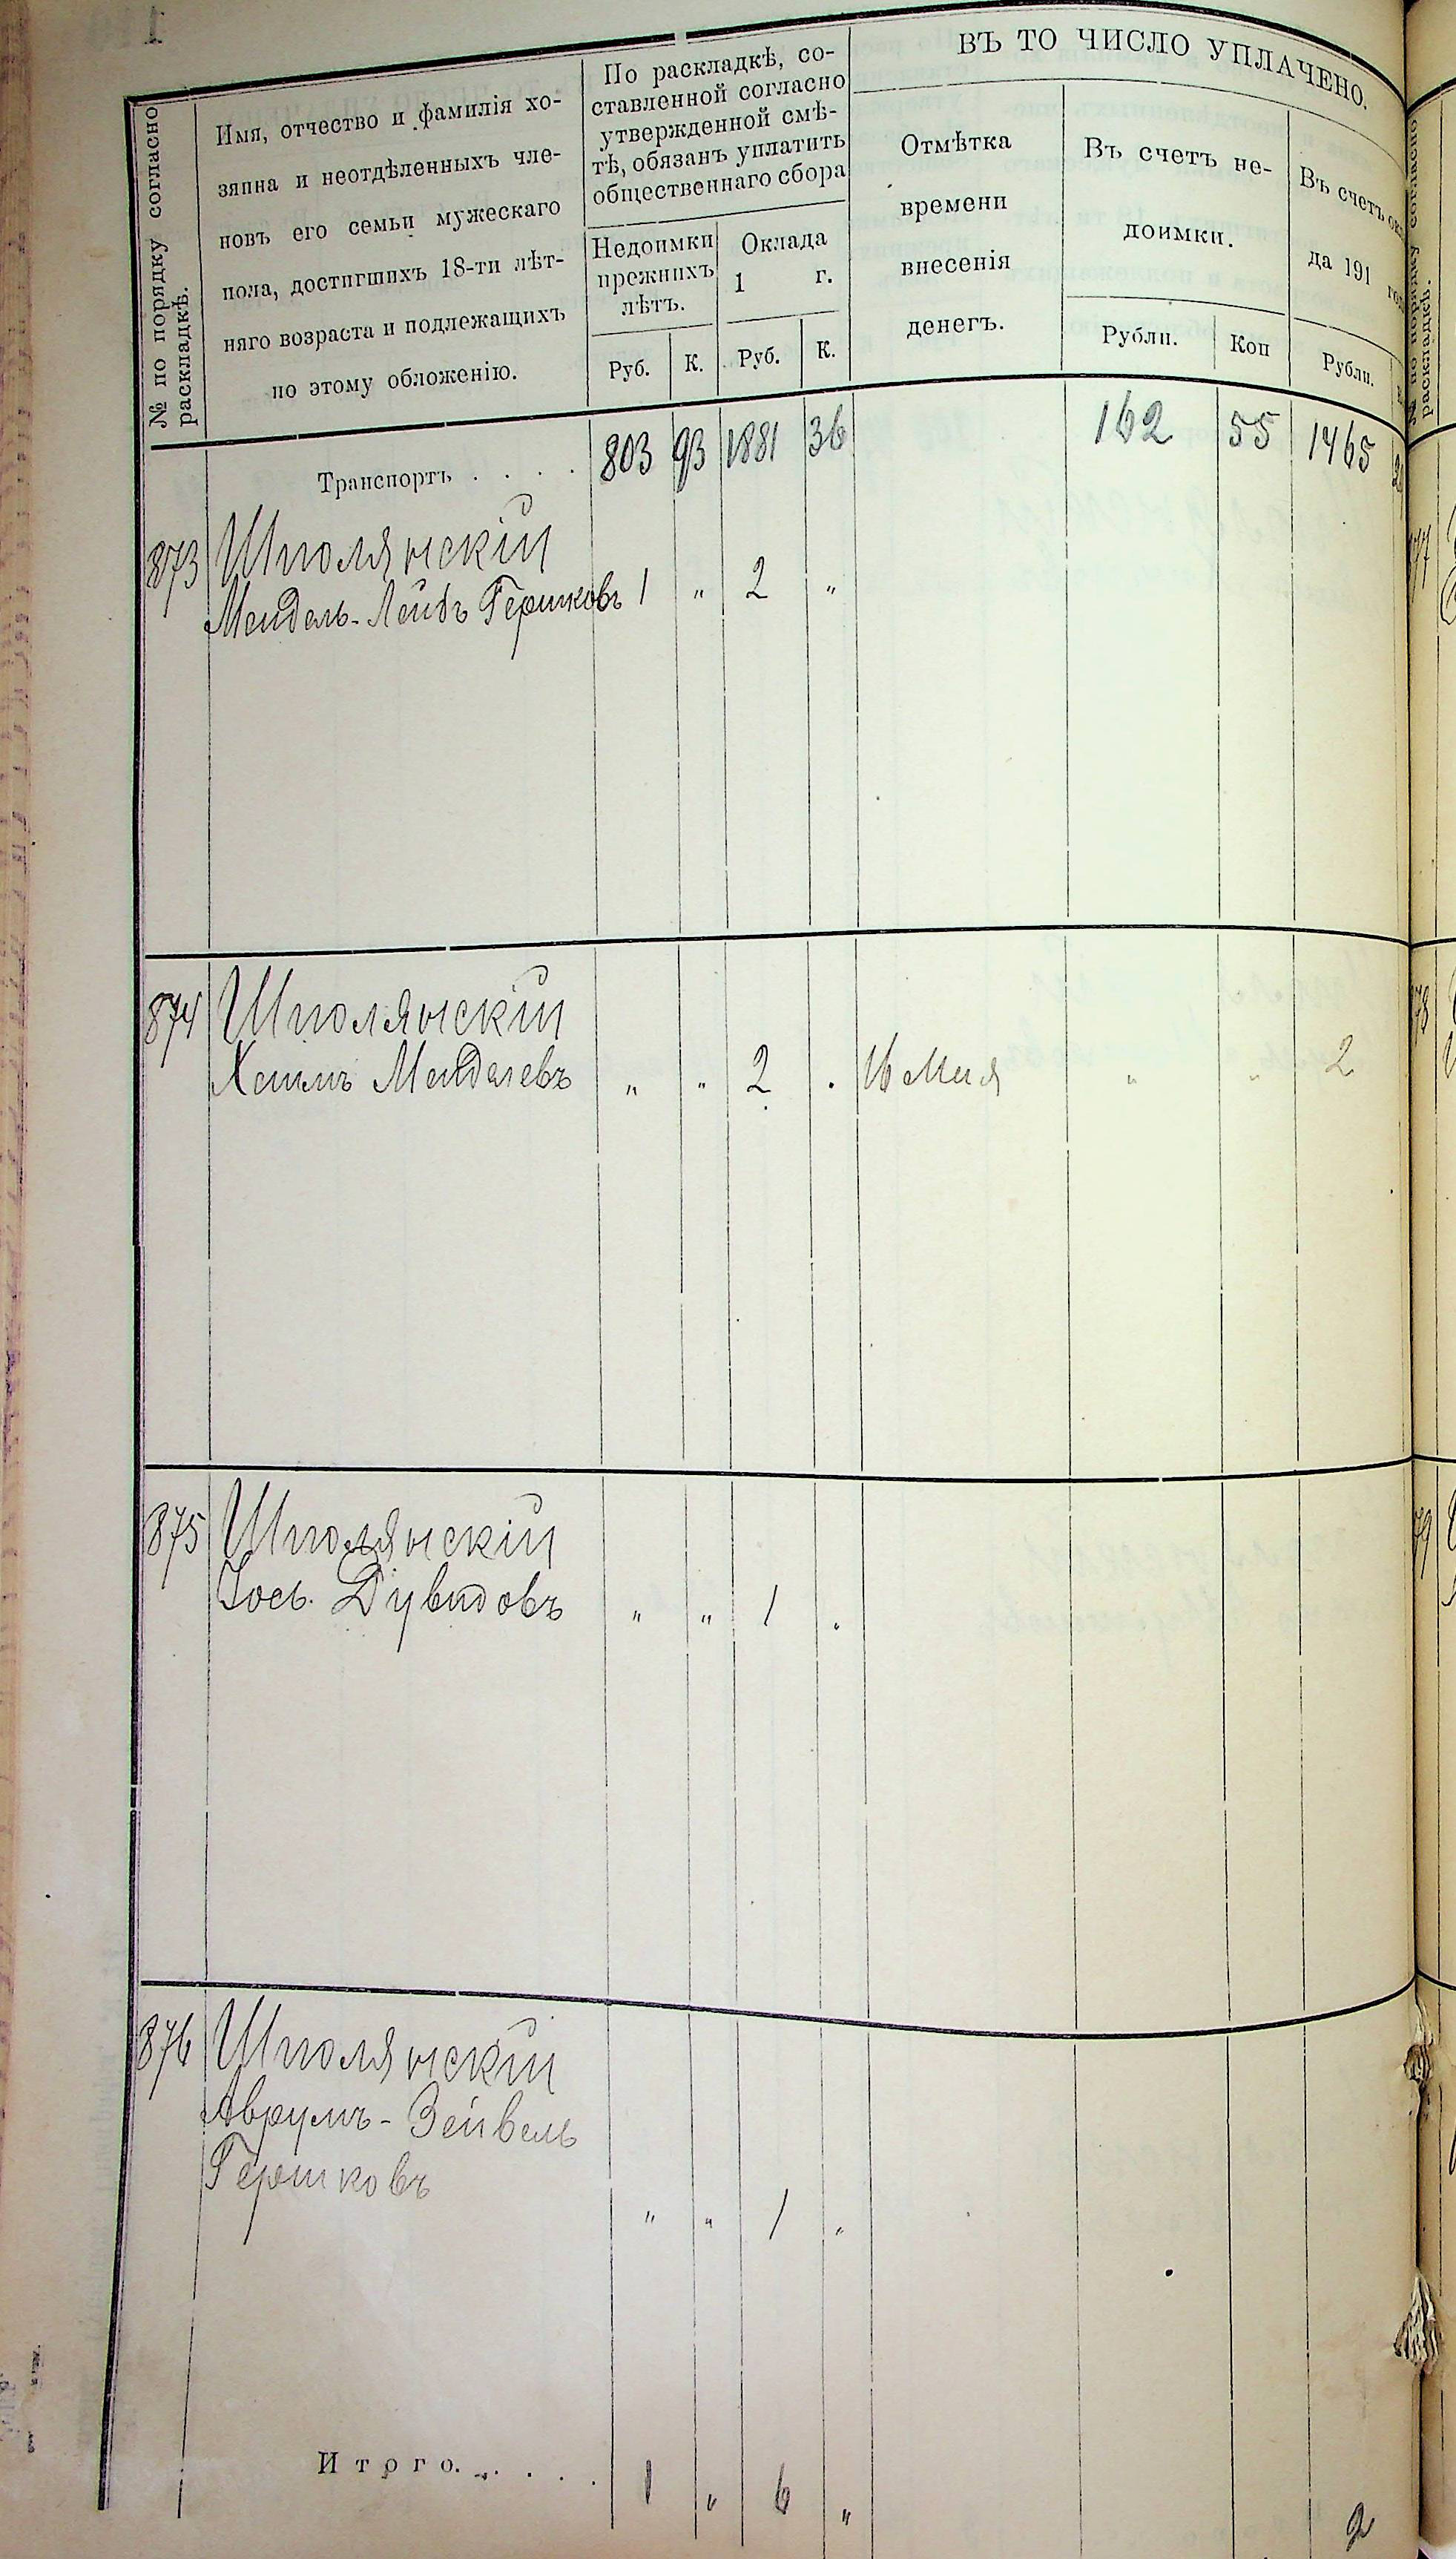 № по порядку согласно
раскладкѣ.
Имя, отчество и фамилія хо-
зяина и неотдѣленныхъ чле-
новъ его семьи мужескаго
пола, достигшихъ 18-ти лѣт-
няго возраста и подлежащихъ
по этому обложенію.
По раскладкѣ, со-
ставленной согласно
утвержденной смѣ-
тѣ, обязанъ уплатить
общественнаго сбора
Недоимки
прежнихъ
лѣтъ.
Оклада
1 г.
Руб. К. Руб. К.
ВЪ ТО ЧИСЛО УПЛАЧЕНО.
Отмѣтка
времени
внесенія
денегъ.
Въ счетъ не-
доимки.
Рубли. Коп
Въ счетъ
да 191
Рубли.
Транспортъ . . . . 803 93 1881 36 162 55 1465
873 Шполянскій
Мендель-Лейбъ Гершковъ 1 " 2 "
874 Шполянскій
Хаимъ Менделевъ " " 2 . 16 Мая " " 2
875 Шполянскій
Іось Дувидовъ " " 1 "
876 Шполянскій
Аврумъ-Зейвель
Гершковъ
" " 1 "
Итого. . . . . 1 " 6 " 2